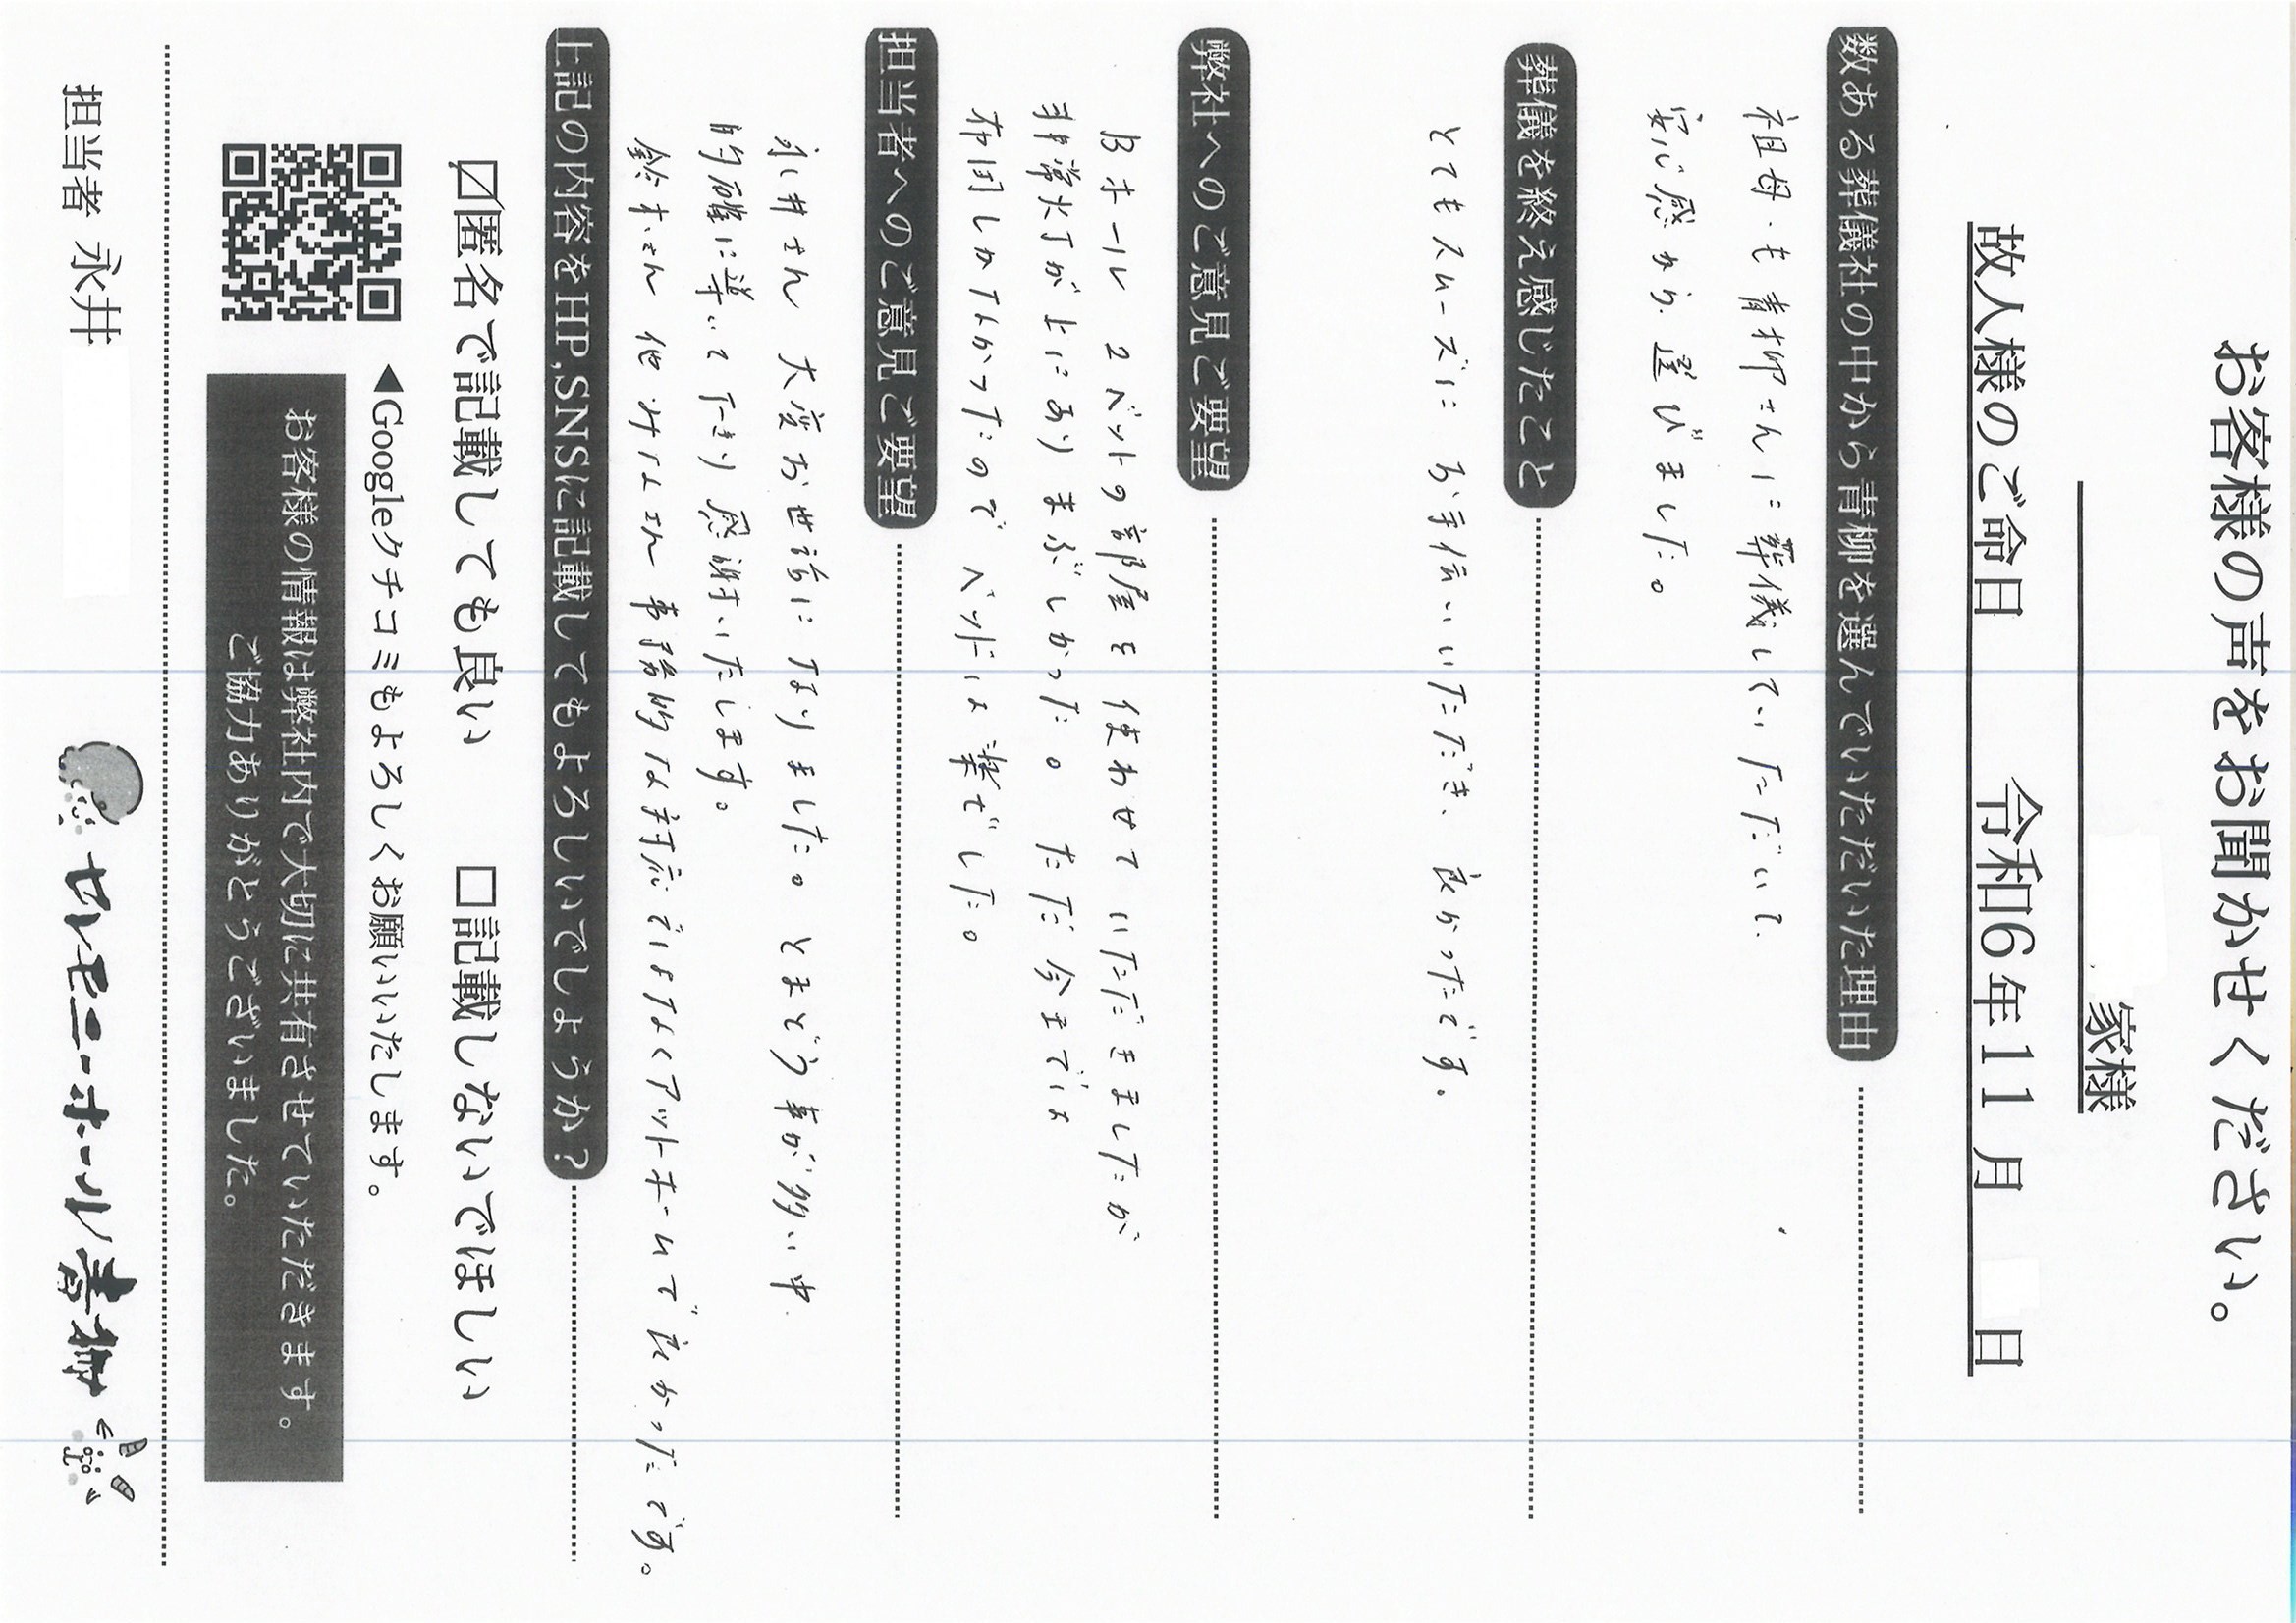 お客様の声をお聞かせください。
家様
故人様のご命日 令和6年11月 日
数ある葬儀社の中から青柳を選んでいただいた理由
祖母も青柳さんに葬儀していただいて、
安心感から選びました。
葬儀を終え感じたこと
とてもスムーズにお手伝いいただき、良かったです。
弊社へのご意見ご要望
Bホール 2ベットの部屋を使わせていただきましたが
非常灯が上にありまぶしかった。ただ今までは
布団しかなかったので ベッドは楽でした。
担当者へのご意見ご要望
永井さん 大変お世話になりました。とまどう事が多い中
的確に導いて下さり感謝いたします。
鈴木さん 他 みなさん 事務的な対応ではなくアットホームで良かったです。
上記の内容をHP,SNSに記載してもよろしいでしょうか?
☑匿名で記載しても良い □記載しないでほしい
◀Googleクチコミもよろしくお願いいたします。
お客様の情報は弊社内で大切に共有させていただきます。
ご協力ありがとうございました。
担当者 永井
セレモニーホール青柳